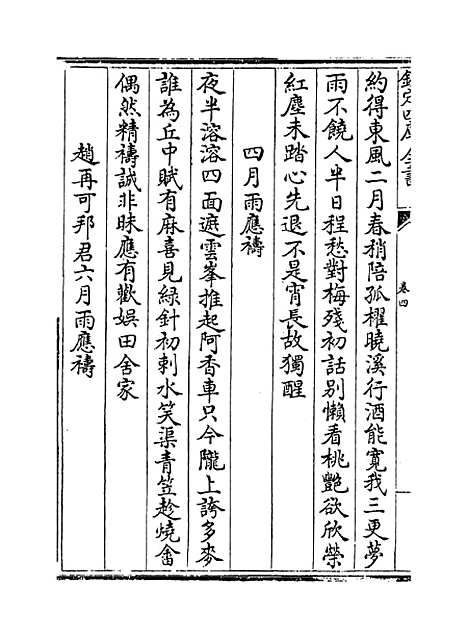 欽定四庫全書
卷四
約得東風二月春稍陪孤櫂曉溪行酒能寛我三更夢
雨不饒人半日程愁對梅殘初話别懶看桃艷欲欣榮
紅塵未踏心先退不是宵長故獨醒
四月雨應禱
夜半溶溶四面遮雲峯推起阿香車只今隴上誇多麥
誰為丘中賦有麻喜見綠針初刺水笑渠青笠趁燒畬
偶然精禱誠非昧應有歡娯田舍家
趙再可邦君六月雨應禱